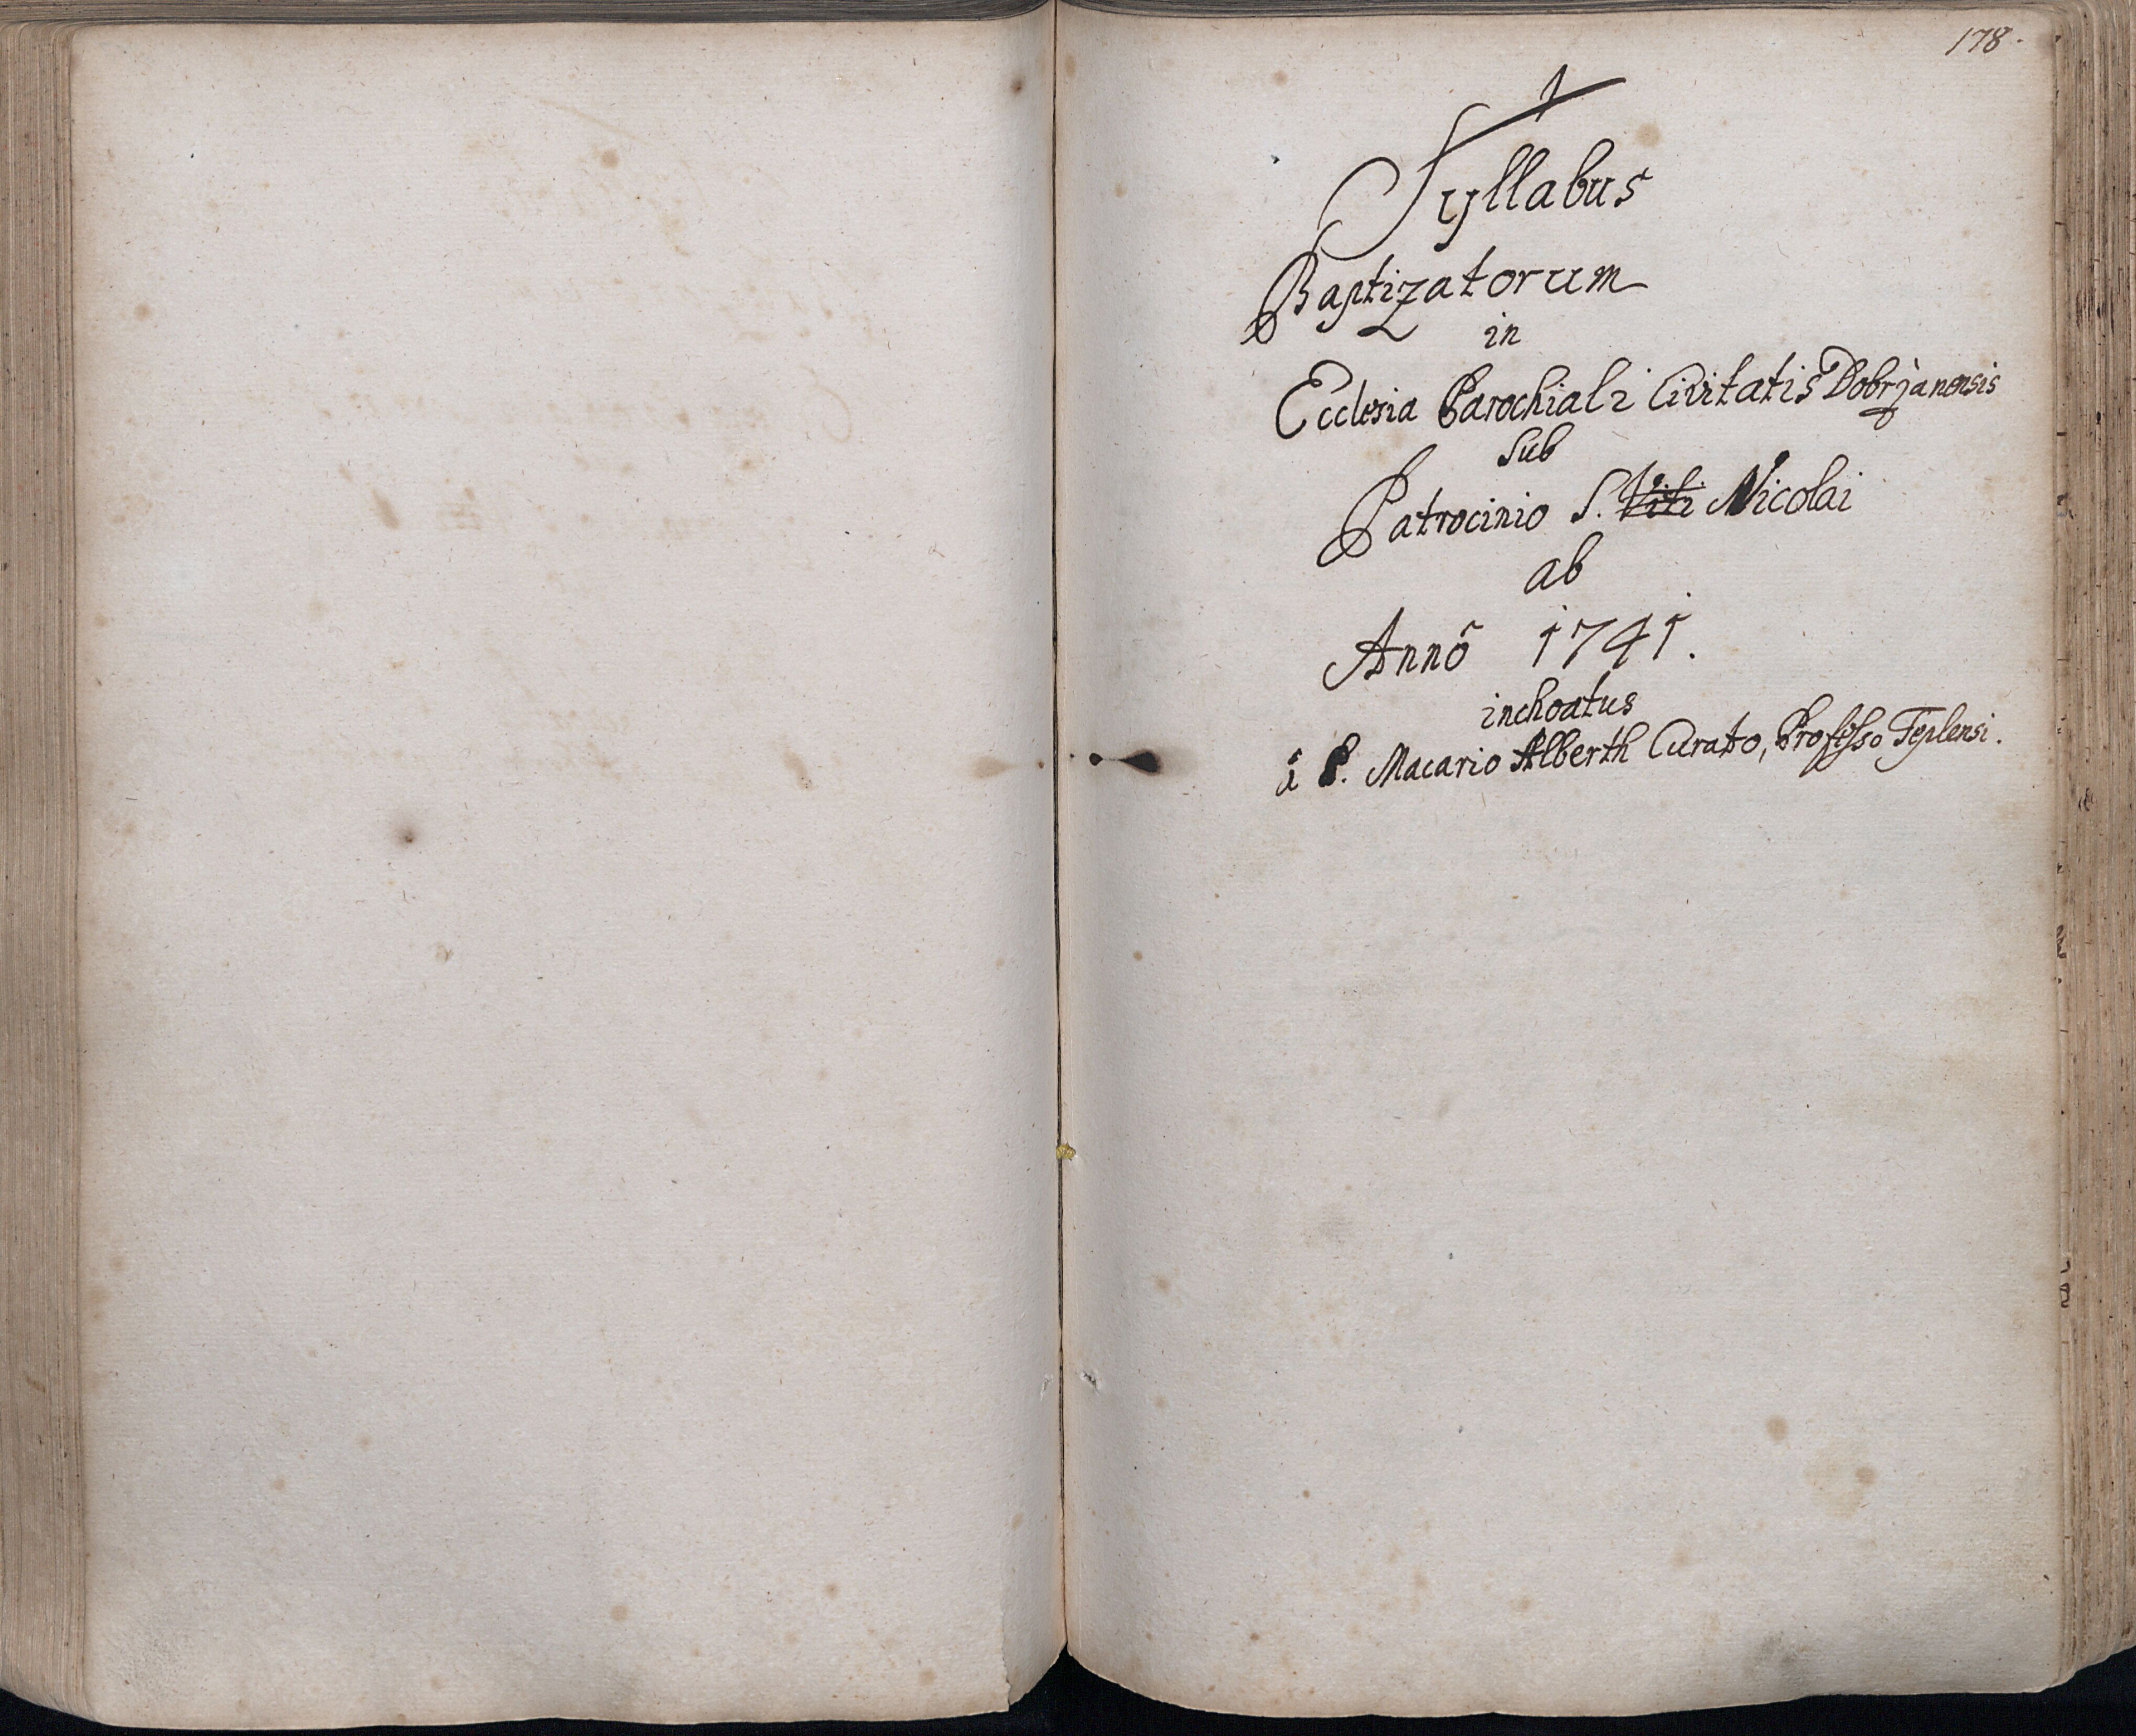 178.
Syllabus
Baptizatorum
in
Ecclesia Parochiali Civitatis Dobrzanensis
Sub
Patrocinio S. Viti Nicolai
ab
Annô 1741.
inchoatus
â P. Macario Alberth Curato, Professo Teplensi.